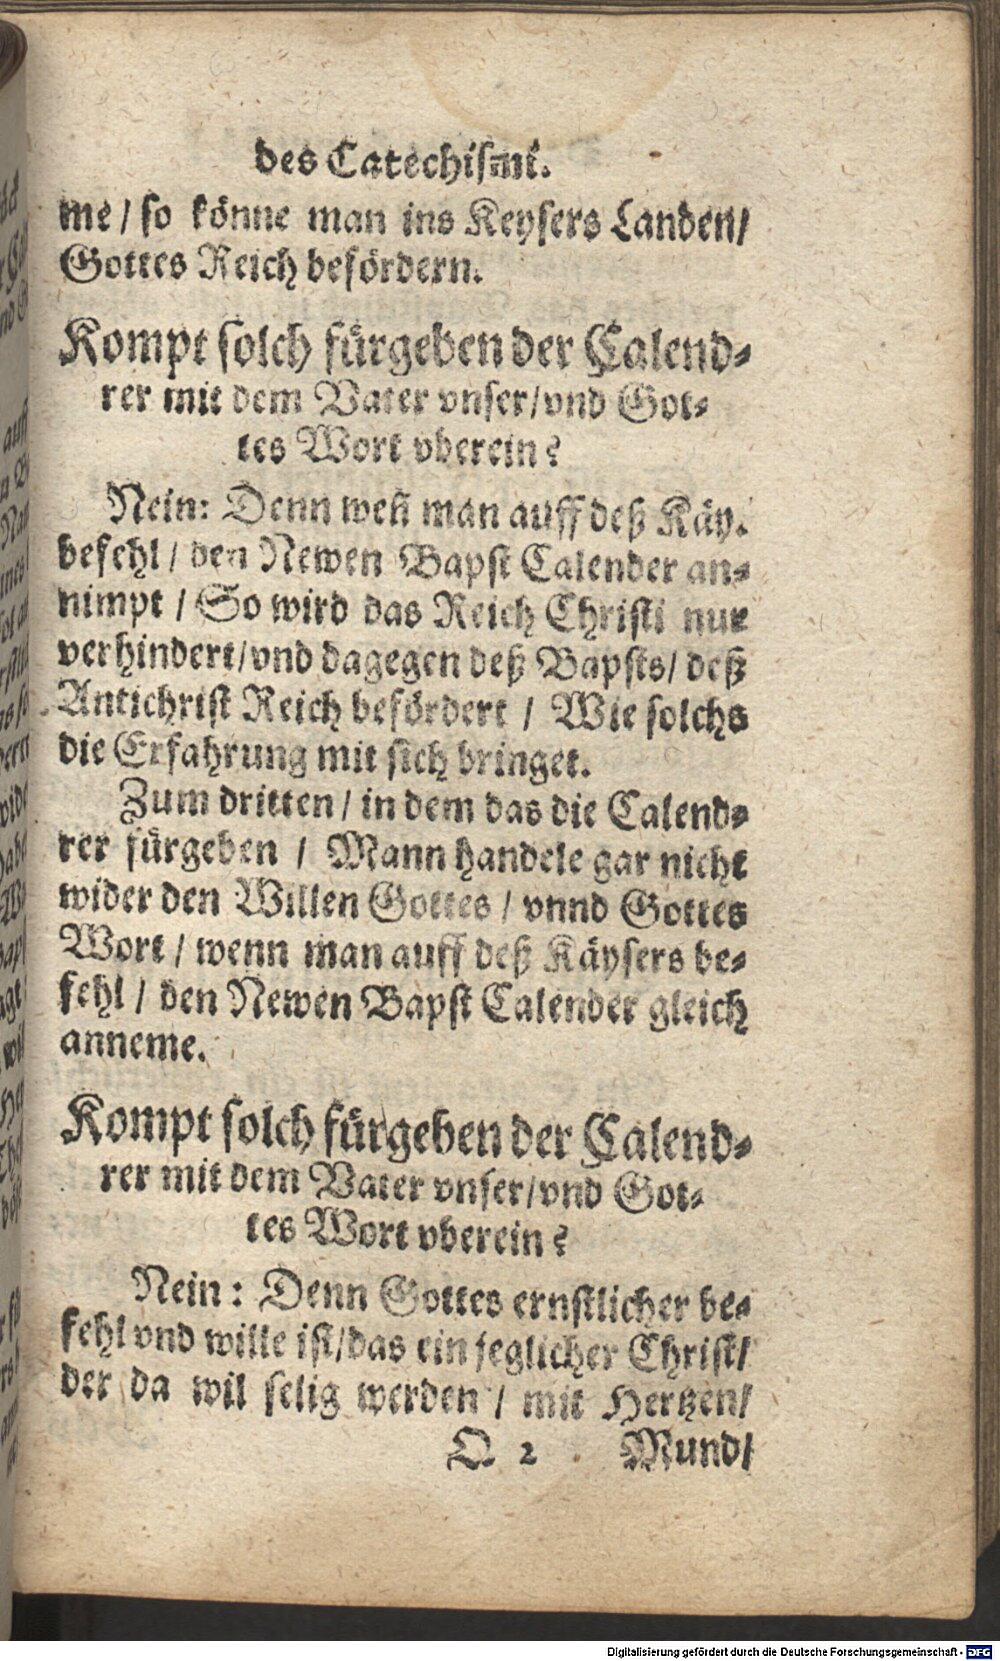 des Catechismi.
me / so könne man ins Keysers Landen /
Gottes Reich befördern.
Kompt solch fürgeben der Calend-
rer mit dem Vater vnser / vnd Got-
tes Wort vberein?
Nein: Denn weñ man auff deß Käy.
befehl / den Newen Bapst Calender an-
nimpt / So wird das Reich Christi nur
verhindert / vnd dagegen deß Bapsts / deß
Antichrist Reich befördert / Wie solchs
die Erfahrung mit sich bringet.
Zum dritten / in dem das die Calend-
rer fürgeben / Mann handele gar nicht
wider den Willen Gottes / vnnd Gottes
Wort / wenn man auff deß Käysers be-
fehl / den Newen Bapst Calender gleich
anneme.
Kompt solch fürgeben der Calend-
rer mit dem Vater vnser / vnd Got-
tes Wort vberein?
Nein: Denn Gottes ernstlicher be-
fehl vnd wille ist / das ein jeglicher Christ /
der da wil selig werden / mit Hertzen /
O 2 Mund /
Digitalisierung gefördert durch die Deutsche Forschungsgemeinschaft - DFG